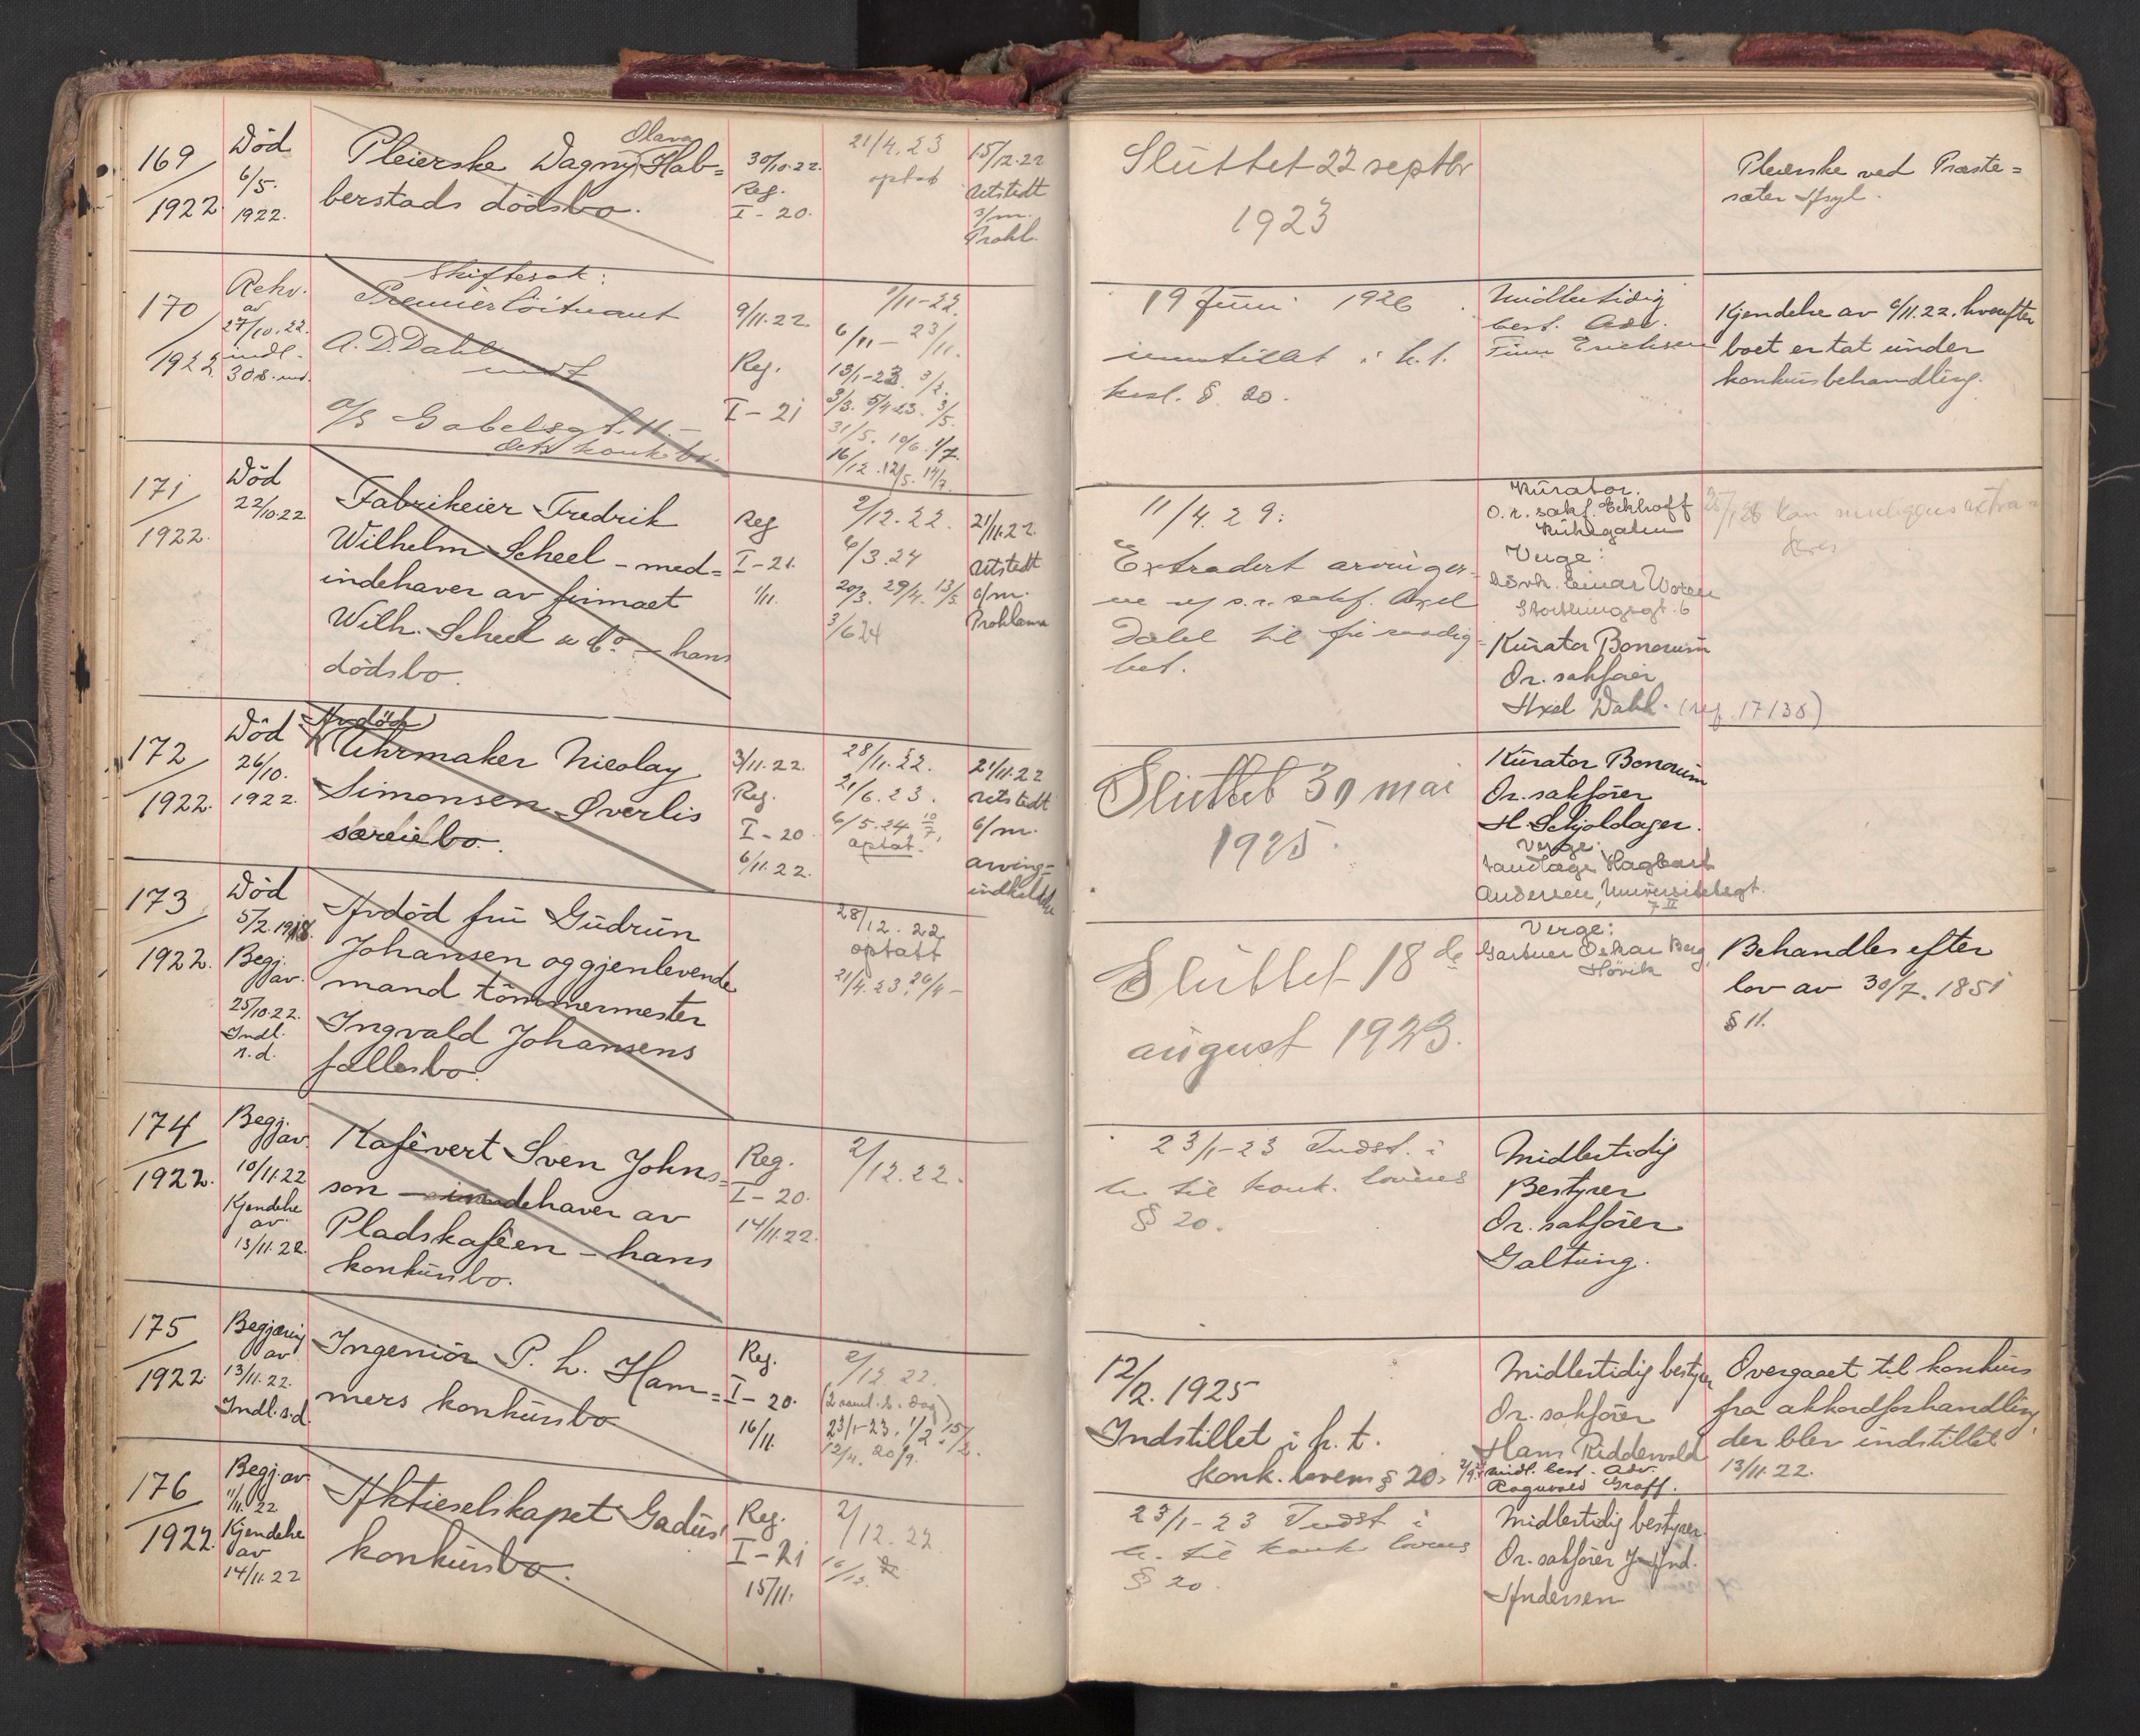 169
1922
Död
6/5.
1922.
Olava
Pleierske Dagny Hab=
berstads dödsbo.
30/10.22.
Reg.
I-20.
21/4.23
optat
15/12.22
Utstedt
3/m.
Prokl.
Sluttet 22 septbr
1923
Pleierske ved Præste=
sæter Asyl.
170
1922
Rekv.
av
27/10.22.
indl.
30s. md.
Skiftesak:
Premierlöitnant
A. D. Dahl
mot
a/s Gabelsgt. 11.-
dets konk.bo.
9/11.22.
Reg.
I-21
9/11-22.
6/11- 23/11.
13/1-23. 3/2.
3/3. 5/4 23. 3/5.
31/5. 10/6. 1/7.
16/12. 12/5. 14/7.
19 Juni 1926
innstillet i h.t.
kksl. § 20.
Midlertidig
best. Adv.
Finn Erichsen
Kjendelse av 6/11.22. hvorefter
boet er tat under
konkursbehandling.
171
1922.
Död
22/10.22
Fabrikeier Fredrik
Wilhelm Scheel - med=
indehaver av firmaet
Wilh. Scheel & Co - hans
dödsbo.
Reg
I-21.
1/11.
2/12.22.
6/3.24
20/3. 29/4. 13/5
3/6 24
21/11.22.
Utstedt
6/m.
Proklama
11/4.29:
Extradert arvinger-
ne v/ o.r. sakf. Axel
Dahl til fri raadig-
het.
Kurator:
O.r. sakf. Eckhoff
Verge:
Stortingsgt. 6
Kurator Bonorum
Or. sakförer
Axel Dahl. (ref. 17138)
172
1922.
Död
26/10.
1922.
Avdöd
Uhrmaker Nicolay
Simonsen Överlis
særeiebo.
3/11.22.
Reg.
I-20
6/11.22.
28/11.22.
21/6.23.
6/5.24. 10/7,
optat.
21/11.22
utstedt
6/m.
arving=
indkaldelse
Sluttet 30 mai
1925.
Kurator Bonorum
Or. sakförer
H. Schjoldager.
Verge:
Tandlæge Hagbart
Andersen, Universitetsgt.
7 II
173
1922.
Död
5/2.1918.
Begj.
av.
25/10.22.
Indl.
s.d.
Avdöd fru Gudrun
Johansen og gjenlevende
mand tömmermester
Ingvald Johansens
fællesbo.
28/12.22
optatt
21/4.23. 26/4-
Sluttet 18 de
august 1923.
Verge:
Gartner Oskar Berg,
Hövik
Behandles efter
lov av 30/7.1851
§ 11.
174
1922.
Begj.
av.
10/11.22
Kjendelse
av
13/11.22.
Kafévert Sven Johns=
son - indehaver av
Pladskaféen - hans
konkursbo.
Reg.
I-20.
14/11.22.
2/12.22.
23/1-23 Indst. i
h. til konk. lovens
§ 20.
Midlertidig
Bestyrer
Or. sakförer
Galtung.
175
1922.
Begjæring
av
13/11.22.
Indl. s.d.
Ingeniör P. L. Ham=
mers konkursbo
Reg.
I-20.
16/11.
2/12.22.
(2 saml. s. dag)
23/1-23. 1/2. 15/2.
12/4. 20/9.
12/2. 1925
Indstillet i h.t.
konk. lovens § 20.
Midlertidig bestyrer
Or. sakförer
Hans Riddervold
midl. best. Adv.
Ragnvald Graff.
Overgaaet til konkurs
fra akkordforhandling,
der blev indstillet
13/11.22.
176
1922.
Begj. av
11/11.22
Kjendelse
av
14/11.22
Aktieselskapet Gadus'
konkursbo.
Reg.
I-21
15/11.
2/12.22.
16/12.
23/1-23 Indst i
h. til konk lovens
§ 20.
Midlertidig bestyrer.
Or. sakförer
Andersen